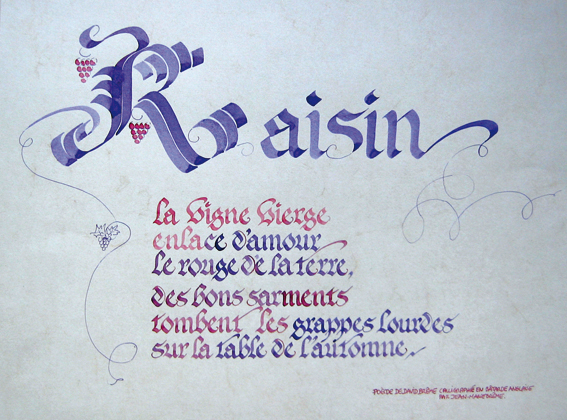 Raisin
la vigne vierge
enlace d'amour
le rouge de la terre,
des bons sarments
tombent les grappes lourdes
sur la table de l'automne.
POÉSIE DE DAVID BRÊME CALLIGRAPHIÉ EN BÂTARDE ANGLAISE
PAR JEAN-MARIE BRÊME.